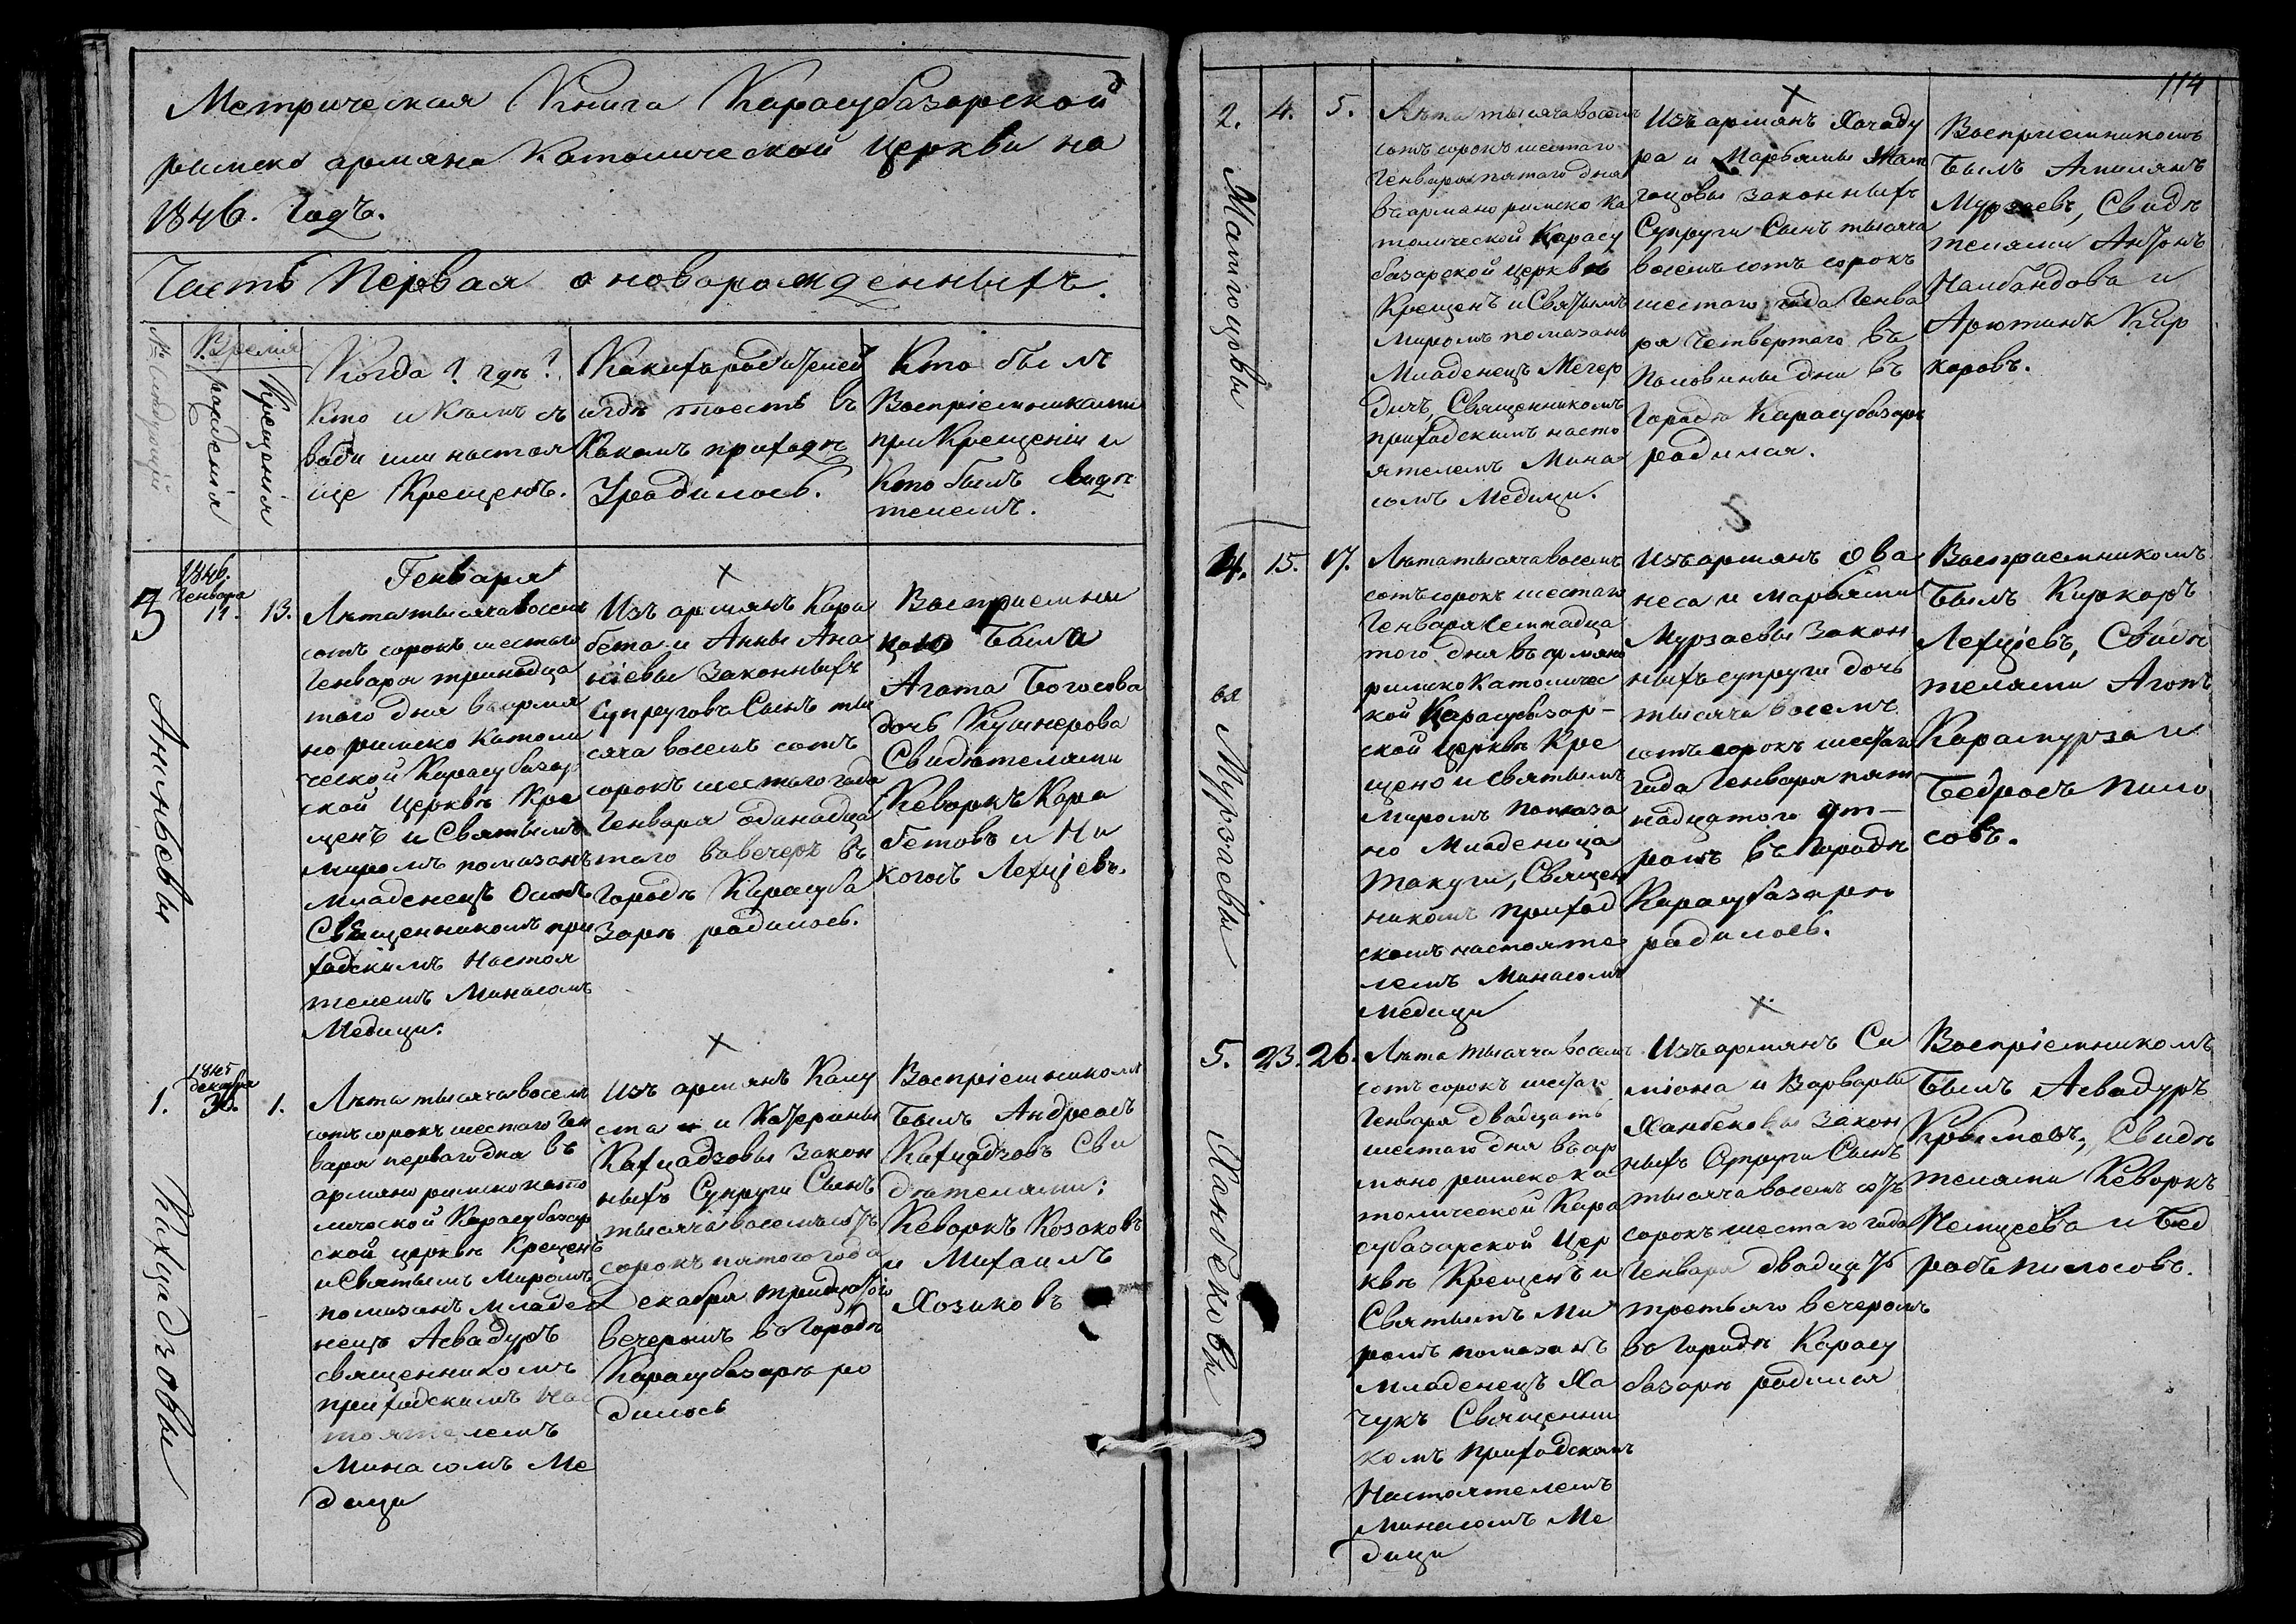 Метрическая Книга Карасубазарской
римско армяно Католической церкви на
1846. годъ.
Часть Первая о новорожденныхъ.
№ Следующій
Время
рожденія
Крещенія
Когда? гдѣ?
Кто и Кѣмъ съ
води или настоя
ще Крещенъ.
Какихъ родителей
игдѣ тоесть въ
Какомъ приходѣ
Уродилось.
Кто былъ
Воспріемниками
при Крещеніи и
Кто былъ свидѣ
телемъ.
3
Ананьевы
1846.
Генваря
11.
13.
Генваря
Лѣта тысяча восемь
сотъ сорокъ шестаго
Генваря тринадца
таго дня въ армя
но римско Католи
ческой Карасубазар
ской церквѣ Кре
щенъ и Святымъ
миромъ помазанъ
младенецъ Осипъ
Священникомъ при
ходскимъ Настоя
телемъ Минасомъ
Медици.
Изъ армянъ Кара
бета и Анны Ана
ніевы Законныхъ
Супруговъ Сынъ ты
сяча восемь сотъ
сорокъ шестаго года
Генваря одинадца
таго вовечерѣ въ
Городѣ Карасуба
зарѣ родилось.
Восприемни
цою была
Агата Богосова
дочь Кушнерова
Свидѣтелями
Кеворкъ Кара
бетовъ и Ни
когосъ Лехціевъ.
1.
Кихцадзовы
1845
декабря
30.
1.
Лѣта тысяча восемь
сотъ сорокъ шестаго Ген
варя перваго дня въ
армяно римско като
лической Карасубазар
ской церквѣ Крещенъ
и Святымъ Миромъ
помазанъ младе
нецъ Асвадуръ
священникомъ
приходскимъ Нас
тоятелемъ
Минасомъ Ме
дици
Изъ армянъ Калу
ста и Катерины
Кахцадзовы Закон
ныхъ Супруги Сынъ
тысяча восемьсотъ
сорокъ пятого года
Декабря тридцатого
вечеромъ въ Городѣ
Карасубазарѣ ро
дилось
Воспріемникомъ
былъ Андреасъ
Кахцадзовъ Сви
дѣтелями:
Кеворкъ Козаковъ
и Михаилъ
Хозиковъ
114
2.
Матгоцовы
4.
5.
Лѣта тысяча восемь
сотъ сорокъ шестаго
Генваря пятаго дня
въ армяно римско Ка
толической Карасу
базарской церквѣ
Крещенъ и Святымъ
Миромъ помазанъ
Младенецъ Мегер
дичъ, Священникомъ
приходскимъ насто
ятелемъ Мина
сомъ Медици.
Изъ армянъ Хачаду
ра и Марьямы Мат
гоцовы законныхъ
Супруги Сынъ тысяча
восемь сотъ сорокъ
шестаго года Генва
ря Четвертаго въ
Половины дни въ
Городѣ Карасубазарѣ
родился.
Восприемникомъ
былъ Априямъ
Мурзаевъ, Свидѣ
телями Антонъ
Налбандова и
Арютинъ Кир
коровъ.
4.
Мурзаевы
15.
17.
Лѣта тысяча восемь
сотъ сорокъ шестаго
Генваря семнадца
того дня въ армяно
римско Католичес
кой Карасубазар-
ской церквѣ Кре
щено и Святымъ
Миромъ помаза
но Младеница
Такуги, Священ
никомъ приход
скомъ настояте
лемъ Минасомъ
Медици
Изъ армянъ Ова
неса и Марьями
Мурзаевы Закон
ныхъ супруги дочь
тысяча восемь
сотъ сорокъ шестаго
года Генваря пят
надцатого ут-
ромъ въ городѣ
Карасубазарѣ
родилось.
Восприемникомъ
былъ Киркоръ
Лехціевъ, Свидѣ
телями Агопъ
Карамурза и
Бедросъ Пило
совъ.
5.
Ханбековы
23.
26.
Лѣта тысяча восемь
сотъ сорокъ шестаго
Генваря двадцать
шестаго дня въ ар
мяно римско ка
толической Кара
субазарской Цер
квѣ Крещенъ и
Святымъ Ми
ромъ помазанъ
Младенецъ Ха
чукъ Священни
комъ приходскомъ
Настоятелемъ
Минасомъ Ме
дици
Изъ армянъ Си
міона и Варвары
Ханбековы Закон
ныхъ Супруги Сынъ
тысяча восемь сотъ
сорокъ шестаго года
Генваря двадцать
третьяго вечеромъ
въ Городѣ Карасу
базарѣ родился
Воспріемникомъ
былъ Асвадуръ
Крымовъ, Свидѣ
телями Кеворкъ
и Бед
росъ пилосовъ.